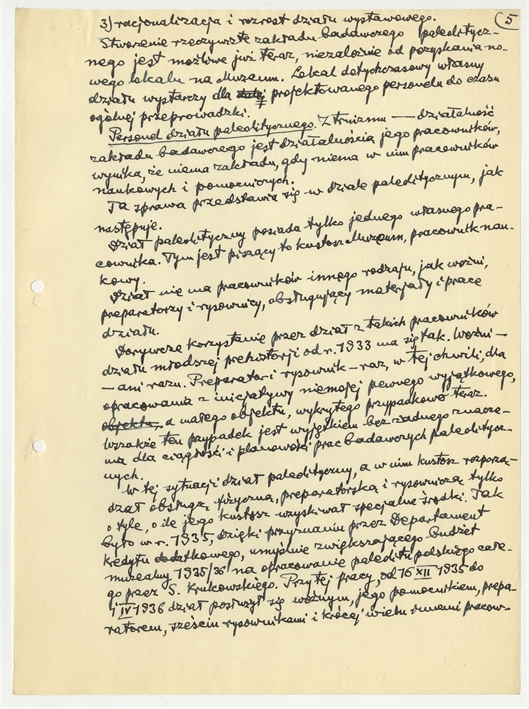 5
3) racjonalizacja i rozrost działu wystawowego.
Stworzenie rzeczywiste zakładu badawczego paleolitycz-
nego jest możliwe już teraz, niezależnie od pozyskania no-
wego lokalu na Muzeum. Lokal dotychczasowy własny
działu wystarczy dla projektowanego personelu do czasu
ogólnej przeprowadzki.
Personel działu paleolitycznego. Z truizmu — działalność
zakładu badawczego jest działalnością jego pracowników,
wynika, że niema zakładu, gdy niema w nim pracowników
naukowych i pomocniczych.
Ta sprawa przedstawia się w dziale paleolitycznym, jak
następuje.
Dział paleolityczny posiada tylko jednego własnego pra-
cownika. Tym jest piszący to kustosz Muzeum, pracownik nau-
kowy.
Dział nie ma pracowników innego rodzaju, jak woźni,
preparatorzy i rysownicy, obsługujący materjały i pracę
działu.
Dorywcze korzystanie przez dział z takich pracowników
działu młodszej prehistorji od r. 1933 ma się tak. Woźni —
— ani razu. Preparator i rysownik — raz, w tej chwili, dla
opracowania z inicjatywy niemojej pewnego wyjątkowego,
objektu, a małego objektu, wykrytego przypadkowo teraz.
Wszakże ten przypadek jest wyjątkiem bez żadnego znacze-
nia dla ciągłości i planowości prac badawczych paleolitycz-
nych.
W tej sytuacji dział paleolityczny, a w nim kustosz rozporzą-
dzał obsługą fizyczną, preparatorską i rysowniczą tylko
o tyle, o ile jego kustosz wyzyskiwał specjalne środki. Tak
było w r. 1935, dzięki przyznaniu przez Departament
kredytu dodatkowego, umyślnie zwiększającego budżet
muzealny 1935/36 na opracowanie paleolitu polskiego całe-
go przez S. Krukowskiego. Przy tej pracy, od 16 XII 1935 do
1 IV 1936 dział posłużył się woźnym, jego pomocnikiem, prepa-
ratorem, sześciu rysownikami i krócej wielu innemi pracow-